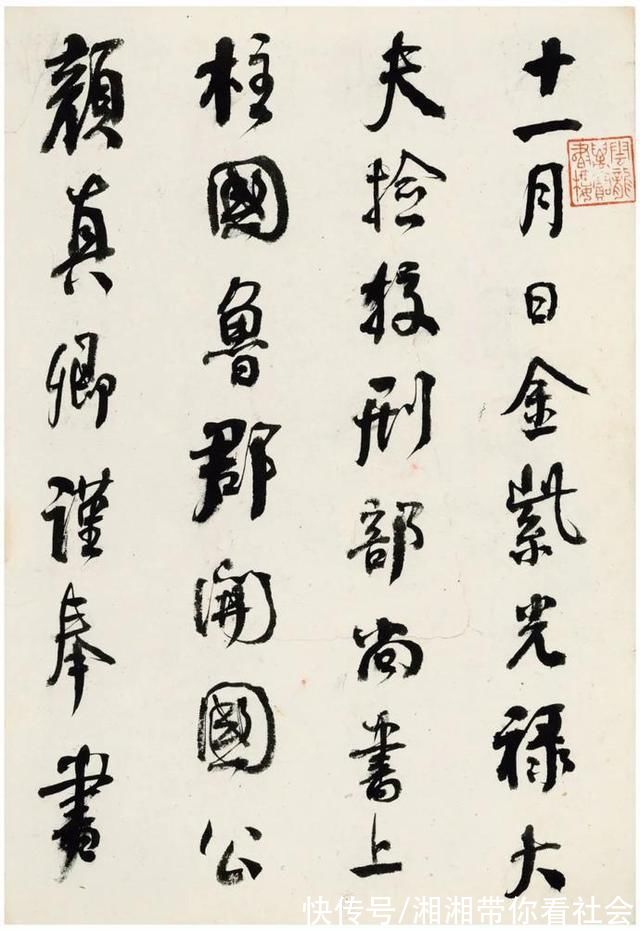 十一月日金紫光禄大
夫捡挍刑部尚書上
柱國魯郡開國公
顏真卿謹奉書
快传号/湘湘带你看社会